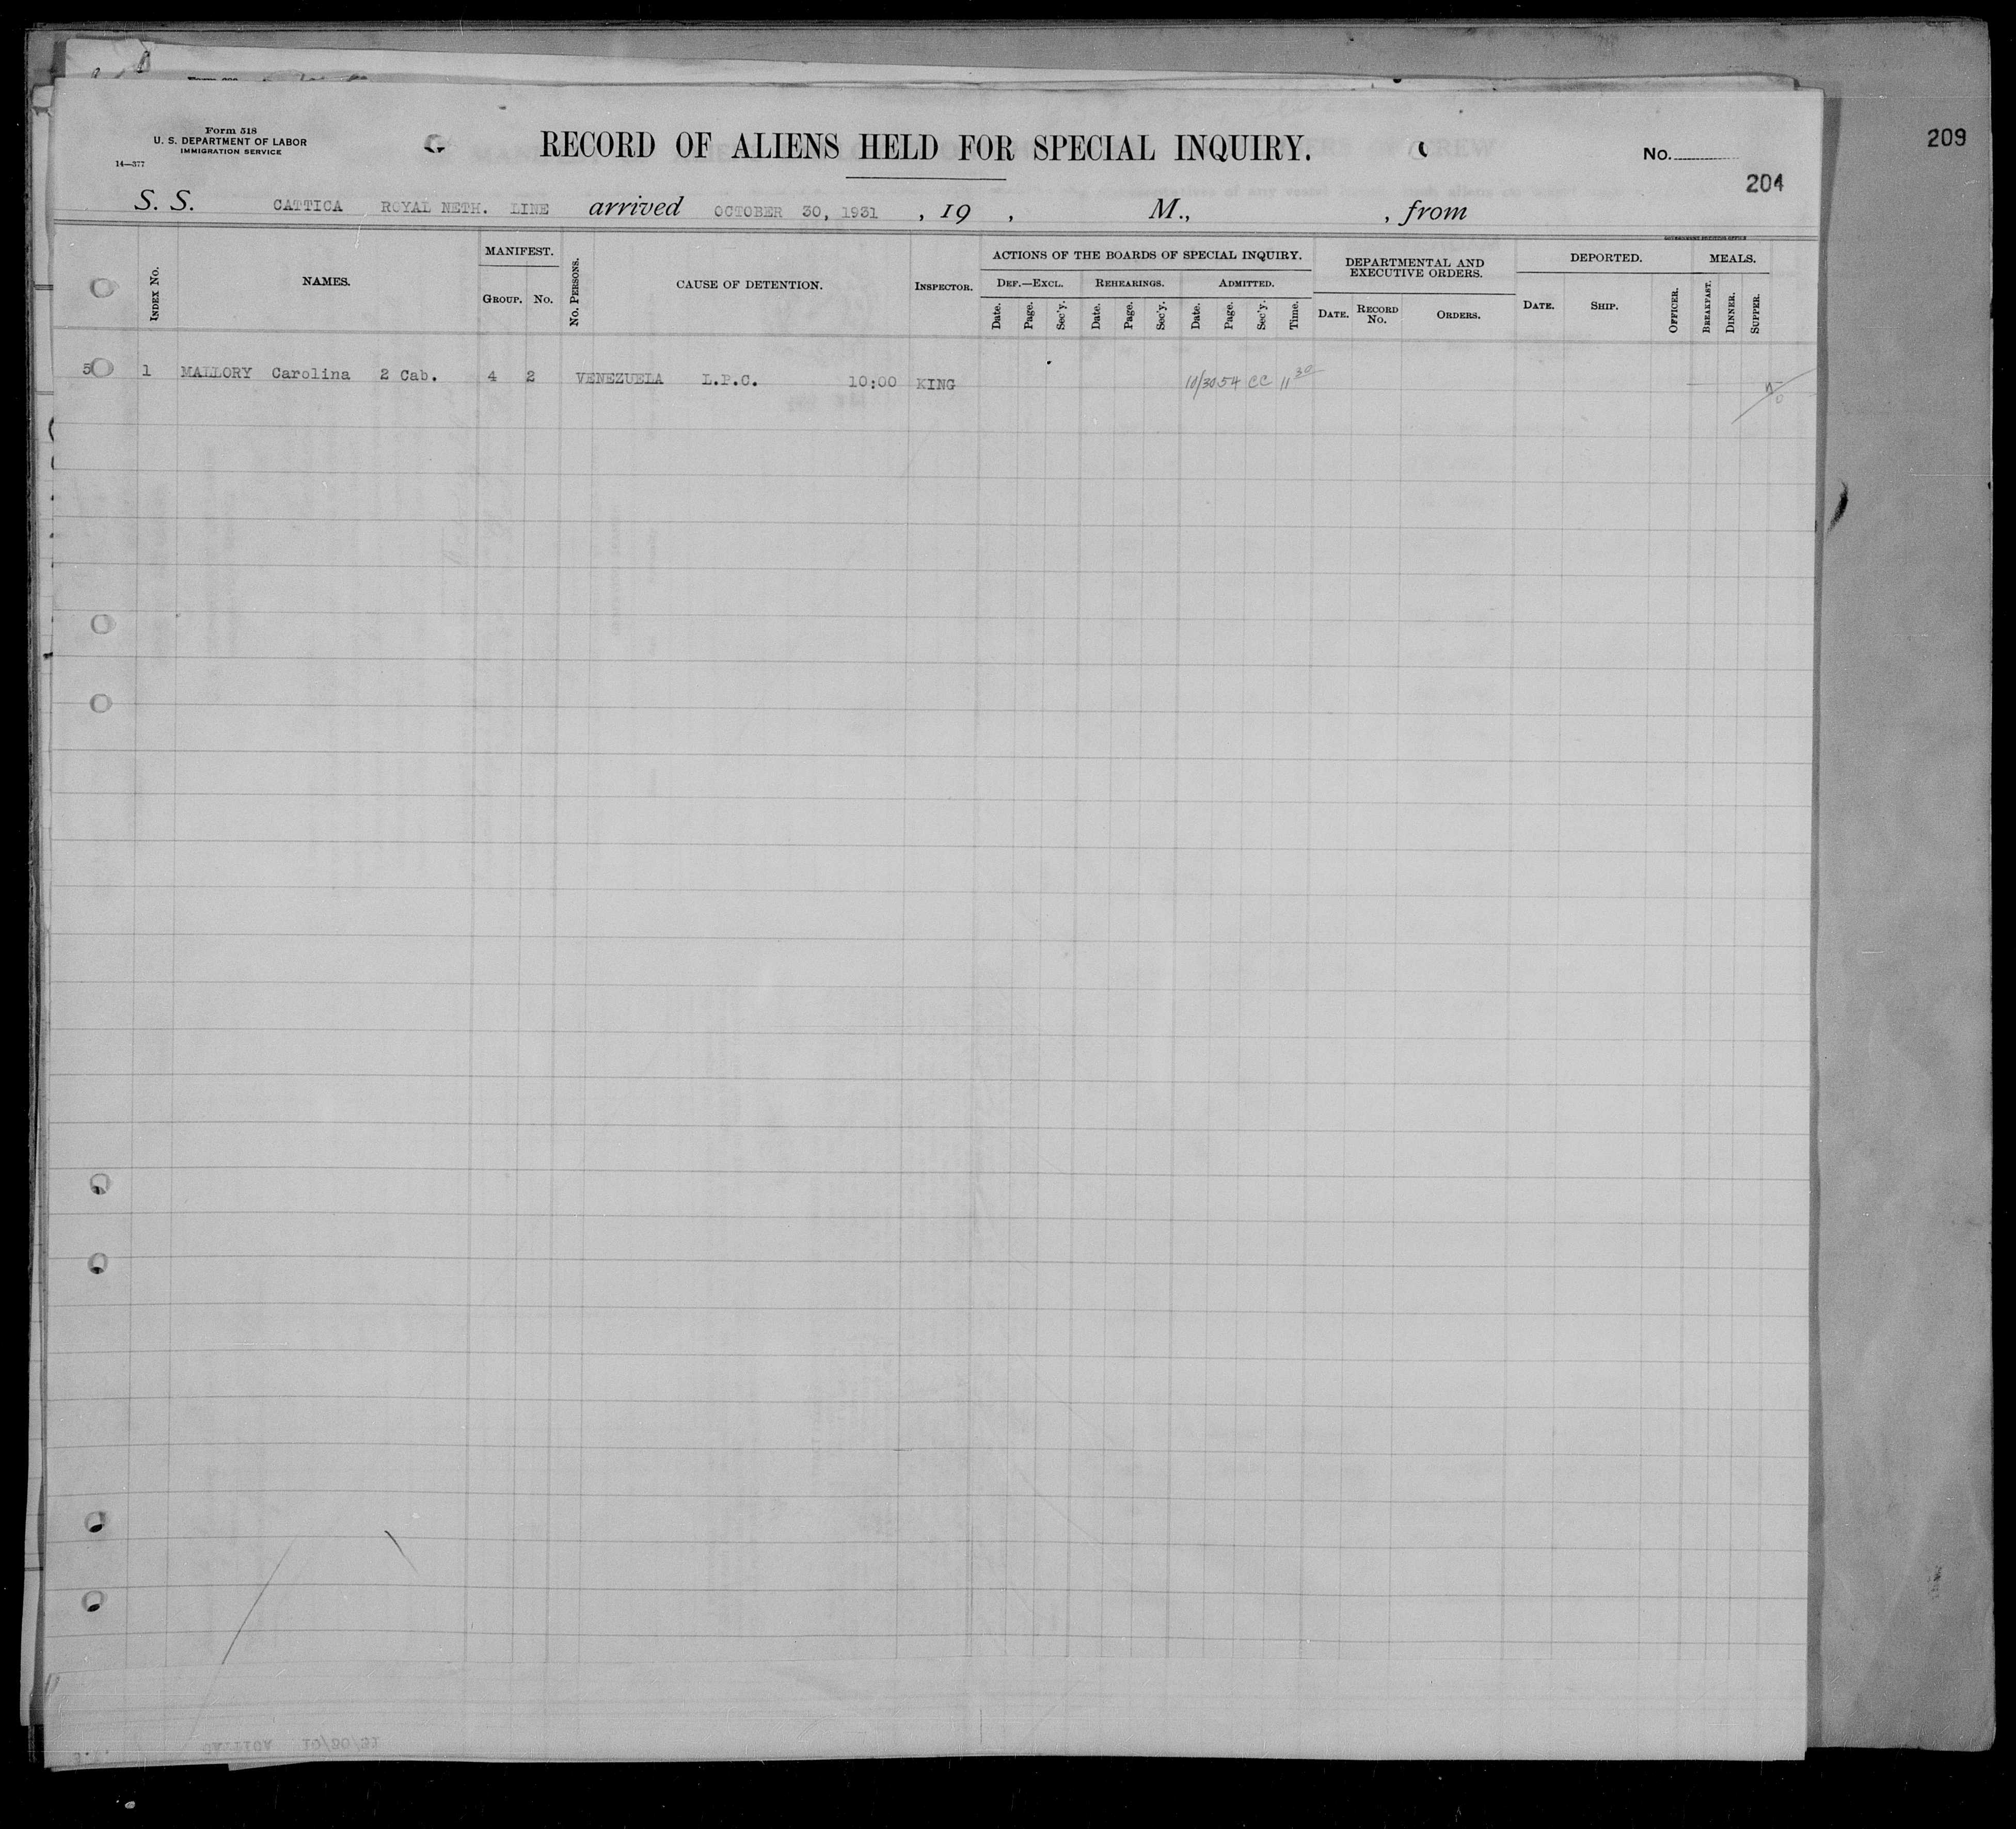 209
Form 518
U. S. DEPARTMENT OF LABOR
IMMIGRATION SERVICE
14—377
RECORD OF ALIENS HELD FOR SPECIAL INQUIRY.
No.
204
S. S. CATTICA ROYAL NETH. LINE arrived OCTOBER 30, 1931 , 19 , M., , from
GOVERNMENT PRINTING OFFICE
INDEX NO.
NAMES.
MANIFEST.
GROUP. NO.
NO. PERSONS.
CAUSE OF DETENTION.
INSPECTOR.
ACTIONS OF THE BOARDS OF SPECIAL INQUIRY.
DEF.—EXCL. REHEARINGS. ADMITTED.
Date. Page. Sec'y. Date. Page. Sec'y. Date. Page. Sec'y. Time.
DEPARTMENTAL AND
EXECUTIVE ORDERS.
DATE. RECORD NO. ORDERS.
DEPORTED.
DATE. SHIP. OFFICER.
MEALS.
BREAKFAST. DINNER. SUPPER.
5 1 MALLORY Carolina 2 Cab. 4 2 VENEZUELA L.P.C. 10:00 KING 10/30 54 CC 11 30
CATTICA 10/30/31